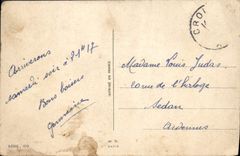 Arriverons
samedi soir à 8h17
Bons baisers
Germaine
Madame Louis Judas
rue de l'horloge
Sedan
Ardennes
CROI
PARIS